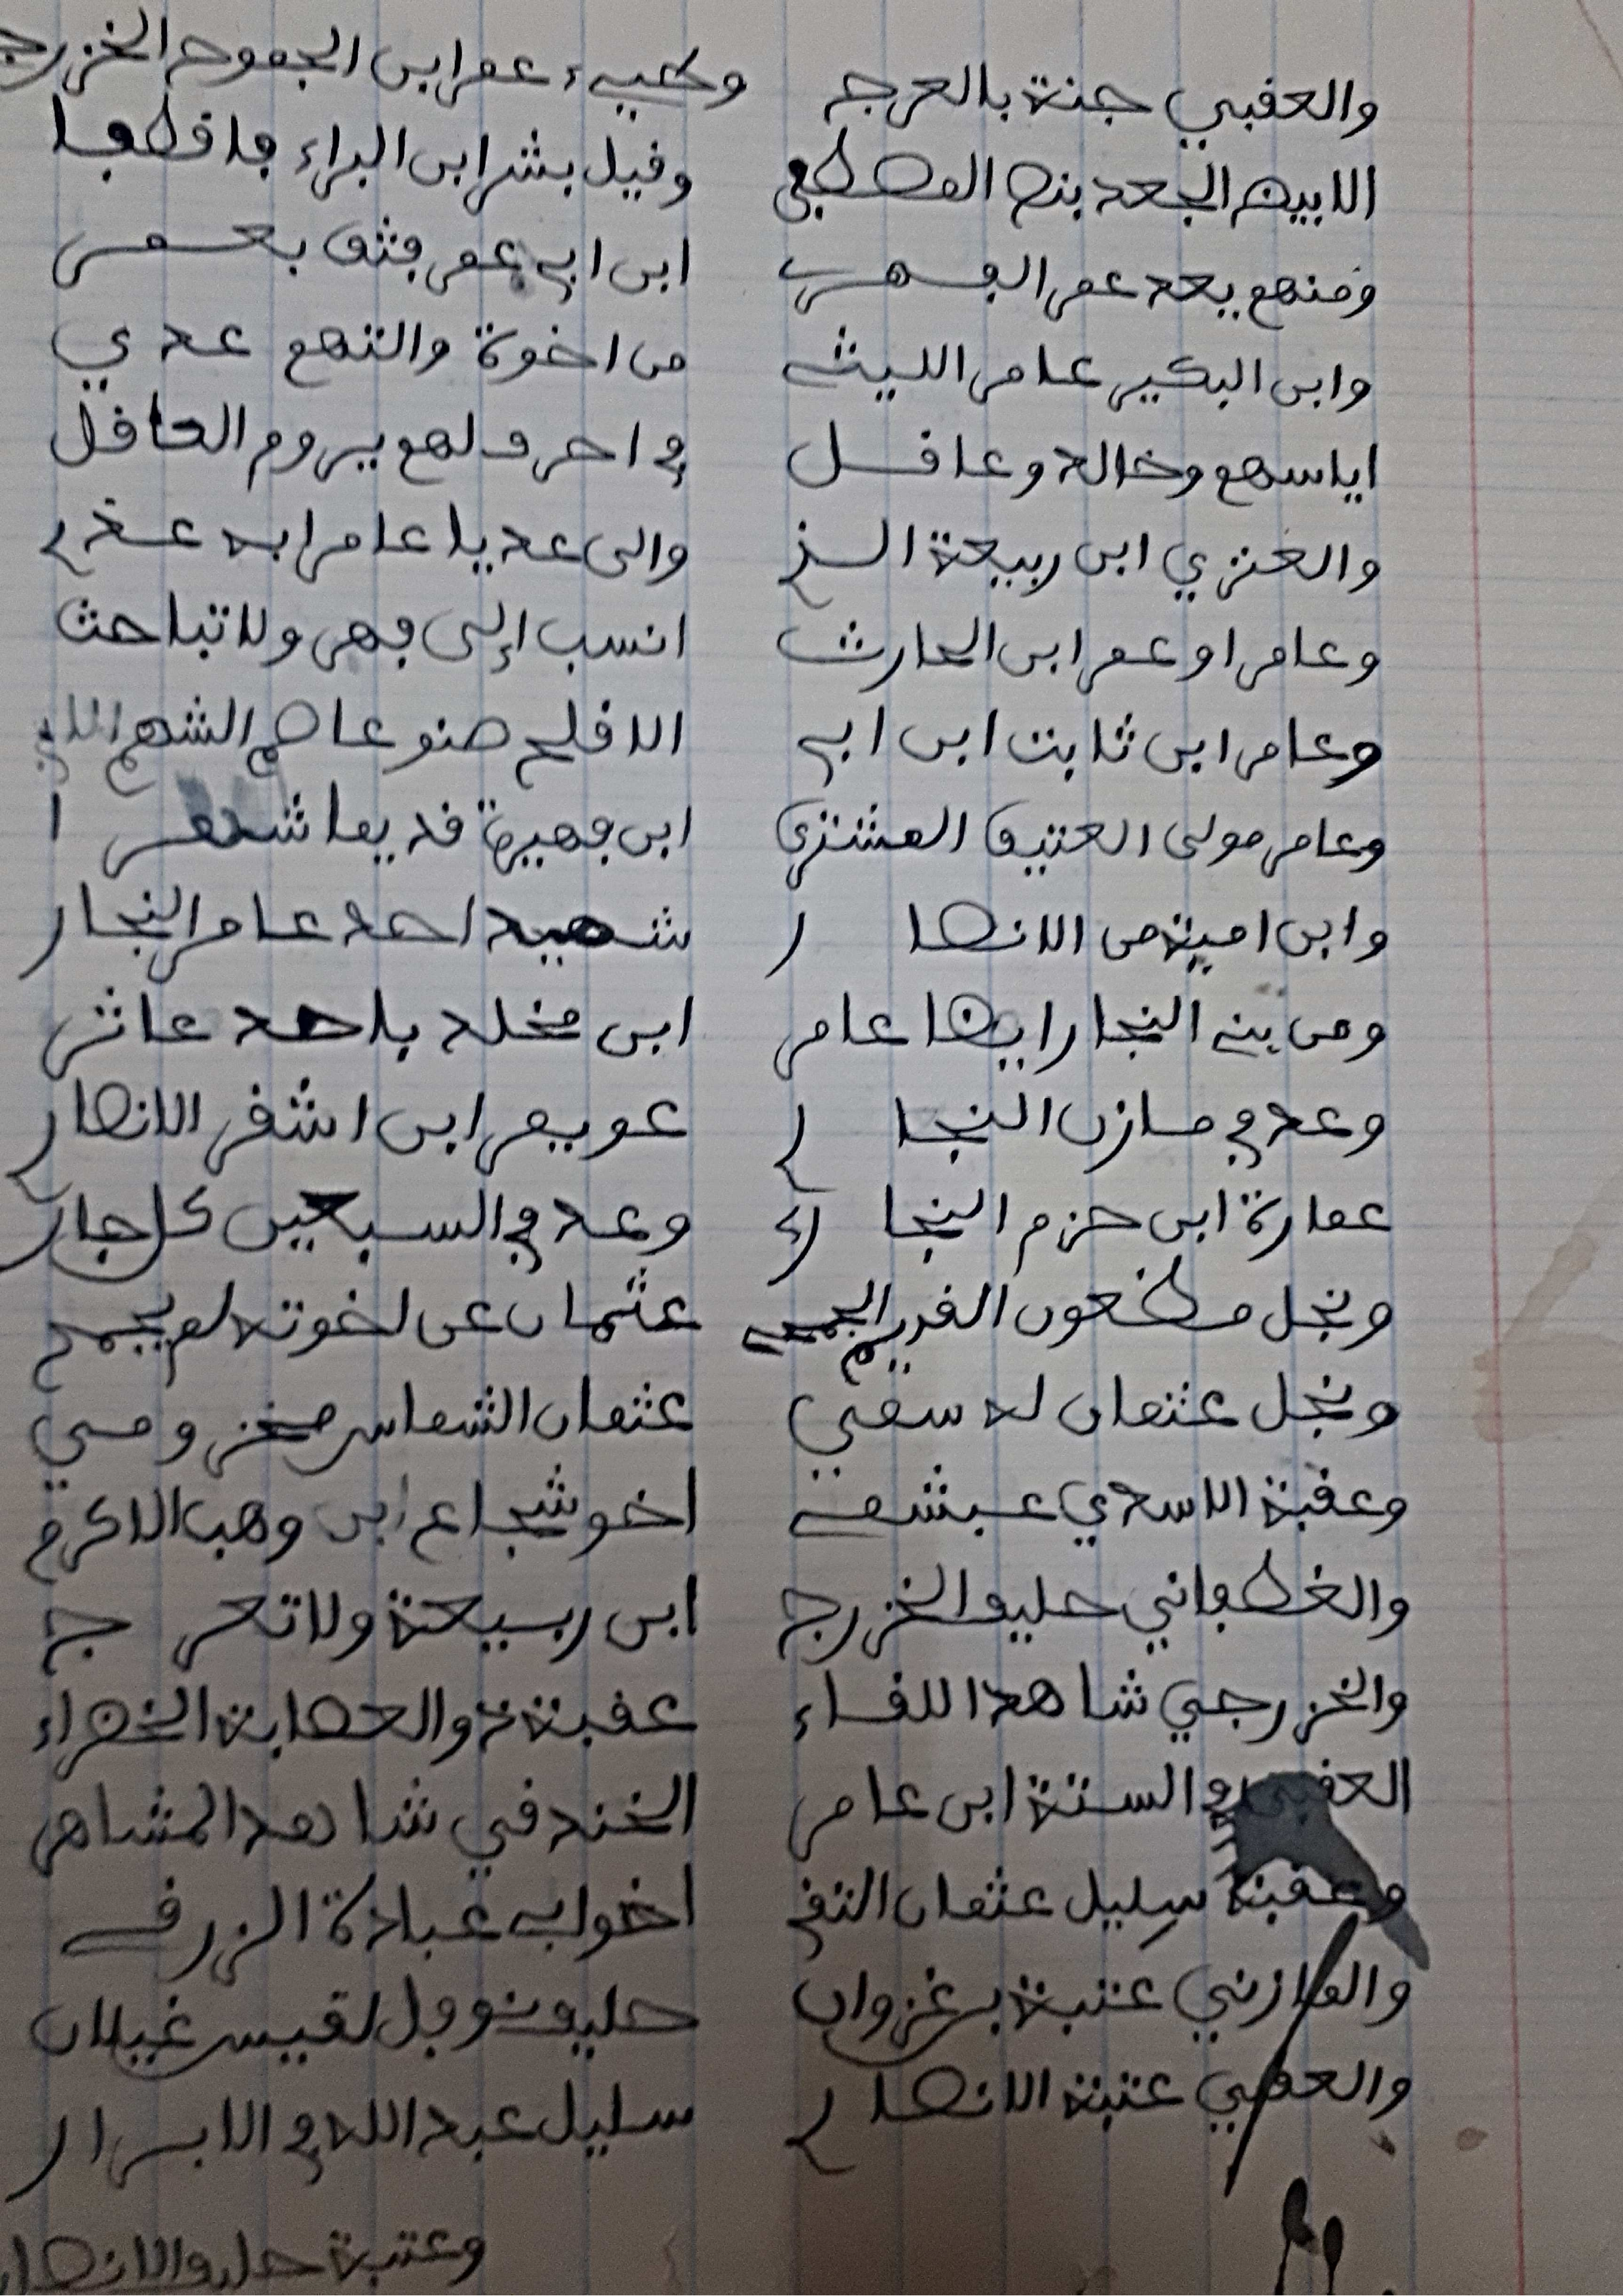 والعقبي جنة بالعرج عمرابن الجموح الخزرج
الابيض الجعد بنص المصطفى وقيل بشرابن البراء فاقطفا
ومنهم بعد عمر الفهري ابن ابي عمر فثق بعمر
وابن البكير عامر الليثي من اخوة والتهم عدي
اياسهم وخالد وعاقل في احرف لهم يروم العاقل
والعنزي ابن ربيعة والى عديا عامرا
وعامر او عمر ابن الحارث انسب إلى فهر ولا تباحث
وعامر ابن ثابت ابن ابي الاقلح صنو عاصم الشهم الابي
وعامر مولى العتيق المشترى ابن فهيرة قديما شهرا
وابن امية من الانصار شهيد احد عامر النجار
ومن بني النجار ايضا عامر ابن مخلد باحد عاثر
وعد في مازن النجار عويمر ابن اشقر الانصار
عمارة ابن حزم النجار وعد في السبعين كل جار
ونجل مظعون القريم الجمحي عثمان عن اخوته لم يجمح
ونجل عثمان له سمي عثمان الشماس مخزومي
وعقبة الاسدي عبشمي اخو شجاع ابن وهب الاكرم
والغطفاني حليف الخزرج ابن ربيعة ولا تعرج
والخزرجي شاهد اللقاء عقبة ذو العصابة الخضراء
العقبي والستة ابن عامر الخندقي شاهد المشاهر
وعقبة سليل عثمان التقي اخو ابي عبادة الزرقي
والمازني عتبة بن غزوان حليف نوفل لقيس غيلان
والعقبي عتبة الانصار سليل عبد الله في الابرار
وعتبة حليف الانصار